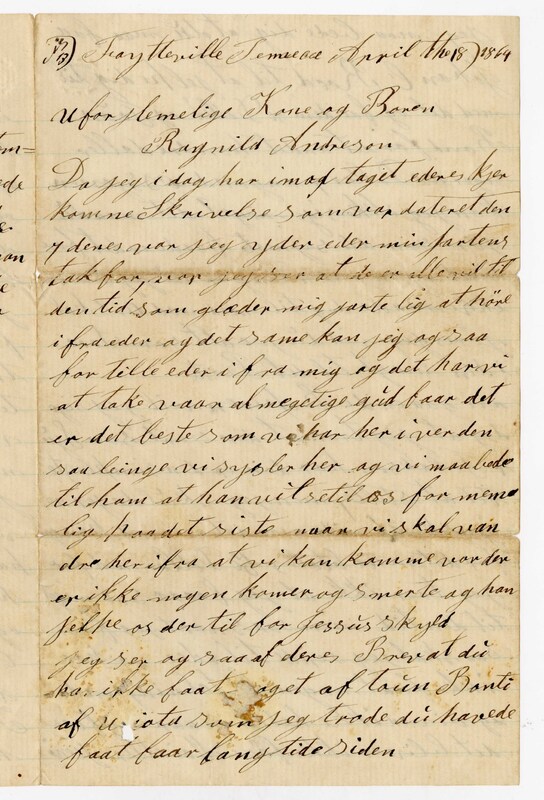 Faytteville Teneaae April the 18) 1864
Uforglemelige Kone og Boren
Ragnild Andreson
Da jeg i dag har imod taget ederes kjer
komne Skrivelse som var dateret den
7 deres vor jeg yder eder min jartens
tak for, vor jeg ser at de er alle vil til
den tid som glæder mig jarte lig at höre
ifra eder og det same kan jeg og saa
for tille eder i fra mig og det har vi
at take vaar almegetige gùd faar det
er det beste som vi har her i verden
saa leinge vi sysler her og vi maa bede
til ham at han vil se til os for nem
lig paa det siste naar vi skal van
dre her ifra at vi kan komme vor der
er ikke nogen komer og smerte og han
jelpe os der til for Jessùs skyld
jeg ser og saa af deres Brev at dù
har ikke faat noget af toùn Bonti
af som jeg trode dù havede
faat faar lang tide siden